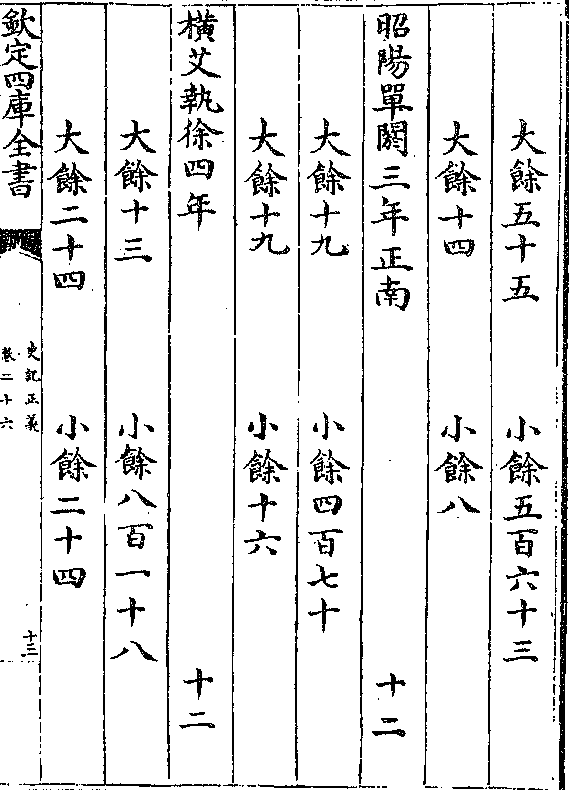 大餘五十五　小餘五百六十三
大餘十四　小餘八
昭陽單閼三年正南　十二
大餘十九　小餘四百七十
大餘十九　小餘十六
橫艾執徐四年　十二
大餘十三　小餘八百一十八
大餘二十四　小餘二十四
欽定四庫全書
史記正義
卷二十六
十三